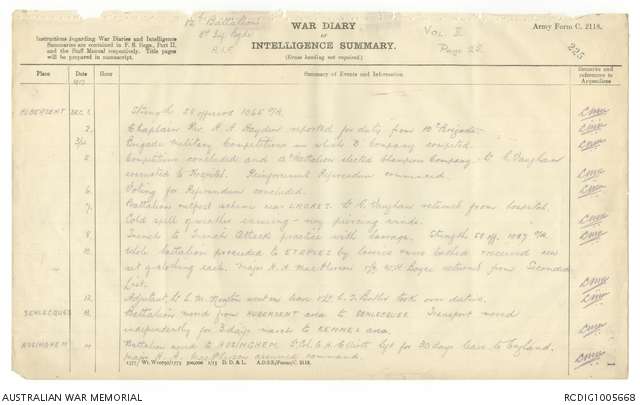 12th Battalion
WAR DIARY
or
INTELLIGENCE SUMMARY.
(Erase heading not required.)
Vol. II
Page 25.
Army Form C. 2118.
225
Instructions regarding War Diaries and Intelligence
Summaries are contained in F. S. Regs., Part II,
and the Staff Manual respectively. Title pages
will be prepared in manuscript.
A.I.F.
Place Date Hour Summary of Events and Information Remarks and references to Appendices
1917
HUBERSENT DEC 1. Strength 58 officers 1065 O/R.
2. Chaplain Rev. H. A. Hayden reported for duty from 10th Brigade.
3/4 Brigade Military Competitions in which B Company competed.
5 Competitions concluded and 12th Battalion elected Champion Company. Lt C. Vaughan
evacuated to Hospital. Reinforcement Referendum commenced.
6. Voting for Referendum concluded.
7. Battalion outpost scheme near LACRES. Lt C. Vaughan returned from hospital.
Cold spell of weather ensuing - very piercing winds.
8. Trench to Trench Attack practice with barrage. Strength 58 off. 1087 O/R
10. Whole battalion proceeded to ETAPLES by lorries were bathed received new
set of clothing each. Major H. A. MacPherson returned from Secondary
List.
12. Adjutant Lt L. M. Newton went on leave took over duties.
SENLECQUES 13. Battalion moved from HUBERSENT area to SENLECQUES. Transport moved
independently for 3 days march to KEMMEL area.
14 Battalion moved to Lt. Col. C. H. Elliott left for 30 days leave to England.
Major H. A. MacPherson assumed command.
A.D.S.S./Forms/C. 2118.
AUSTRALIAN WAR MEMORIAL
RCDIG1005668